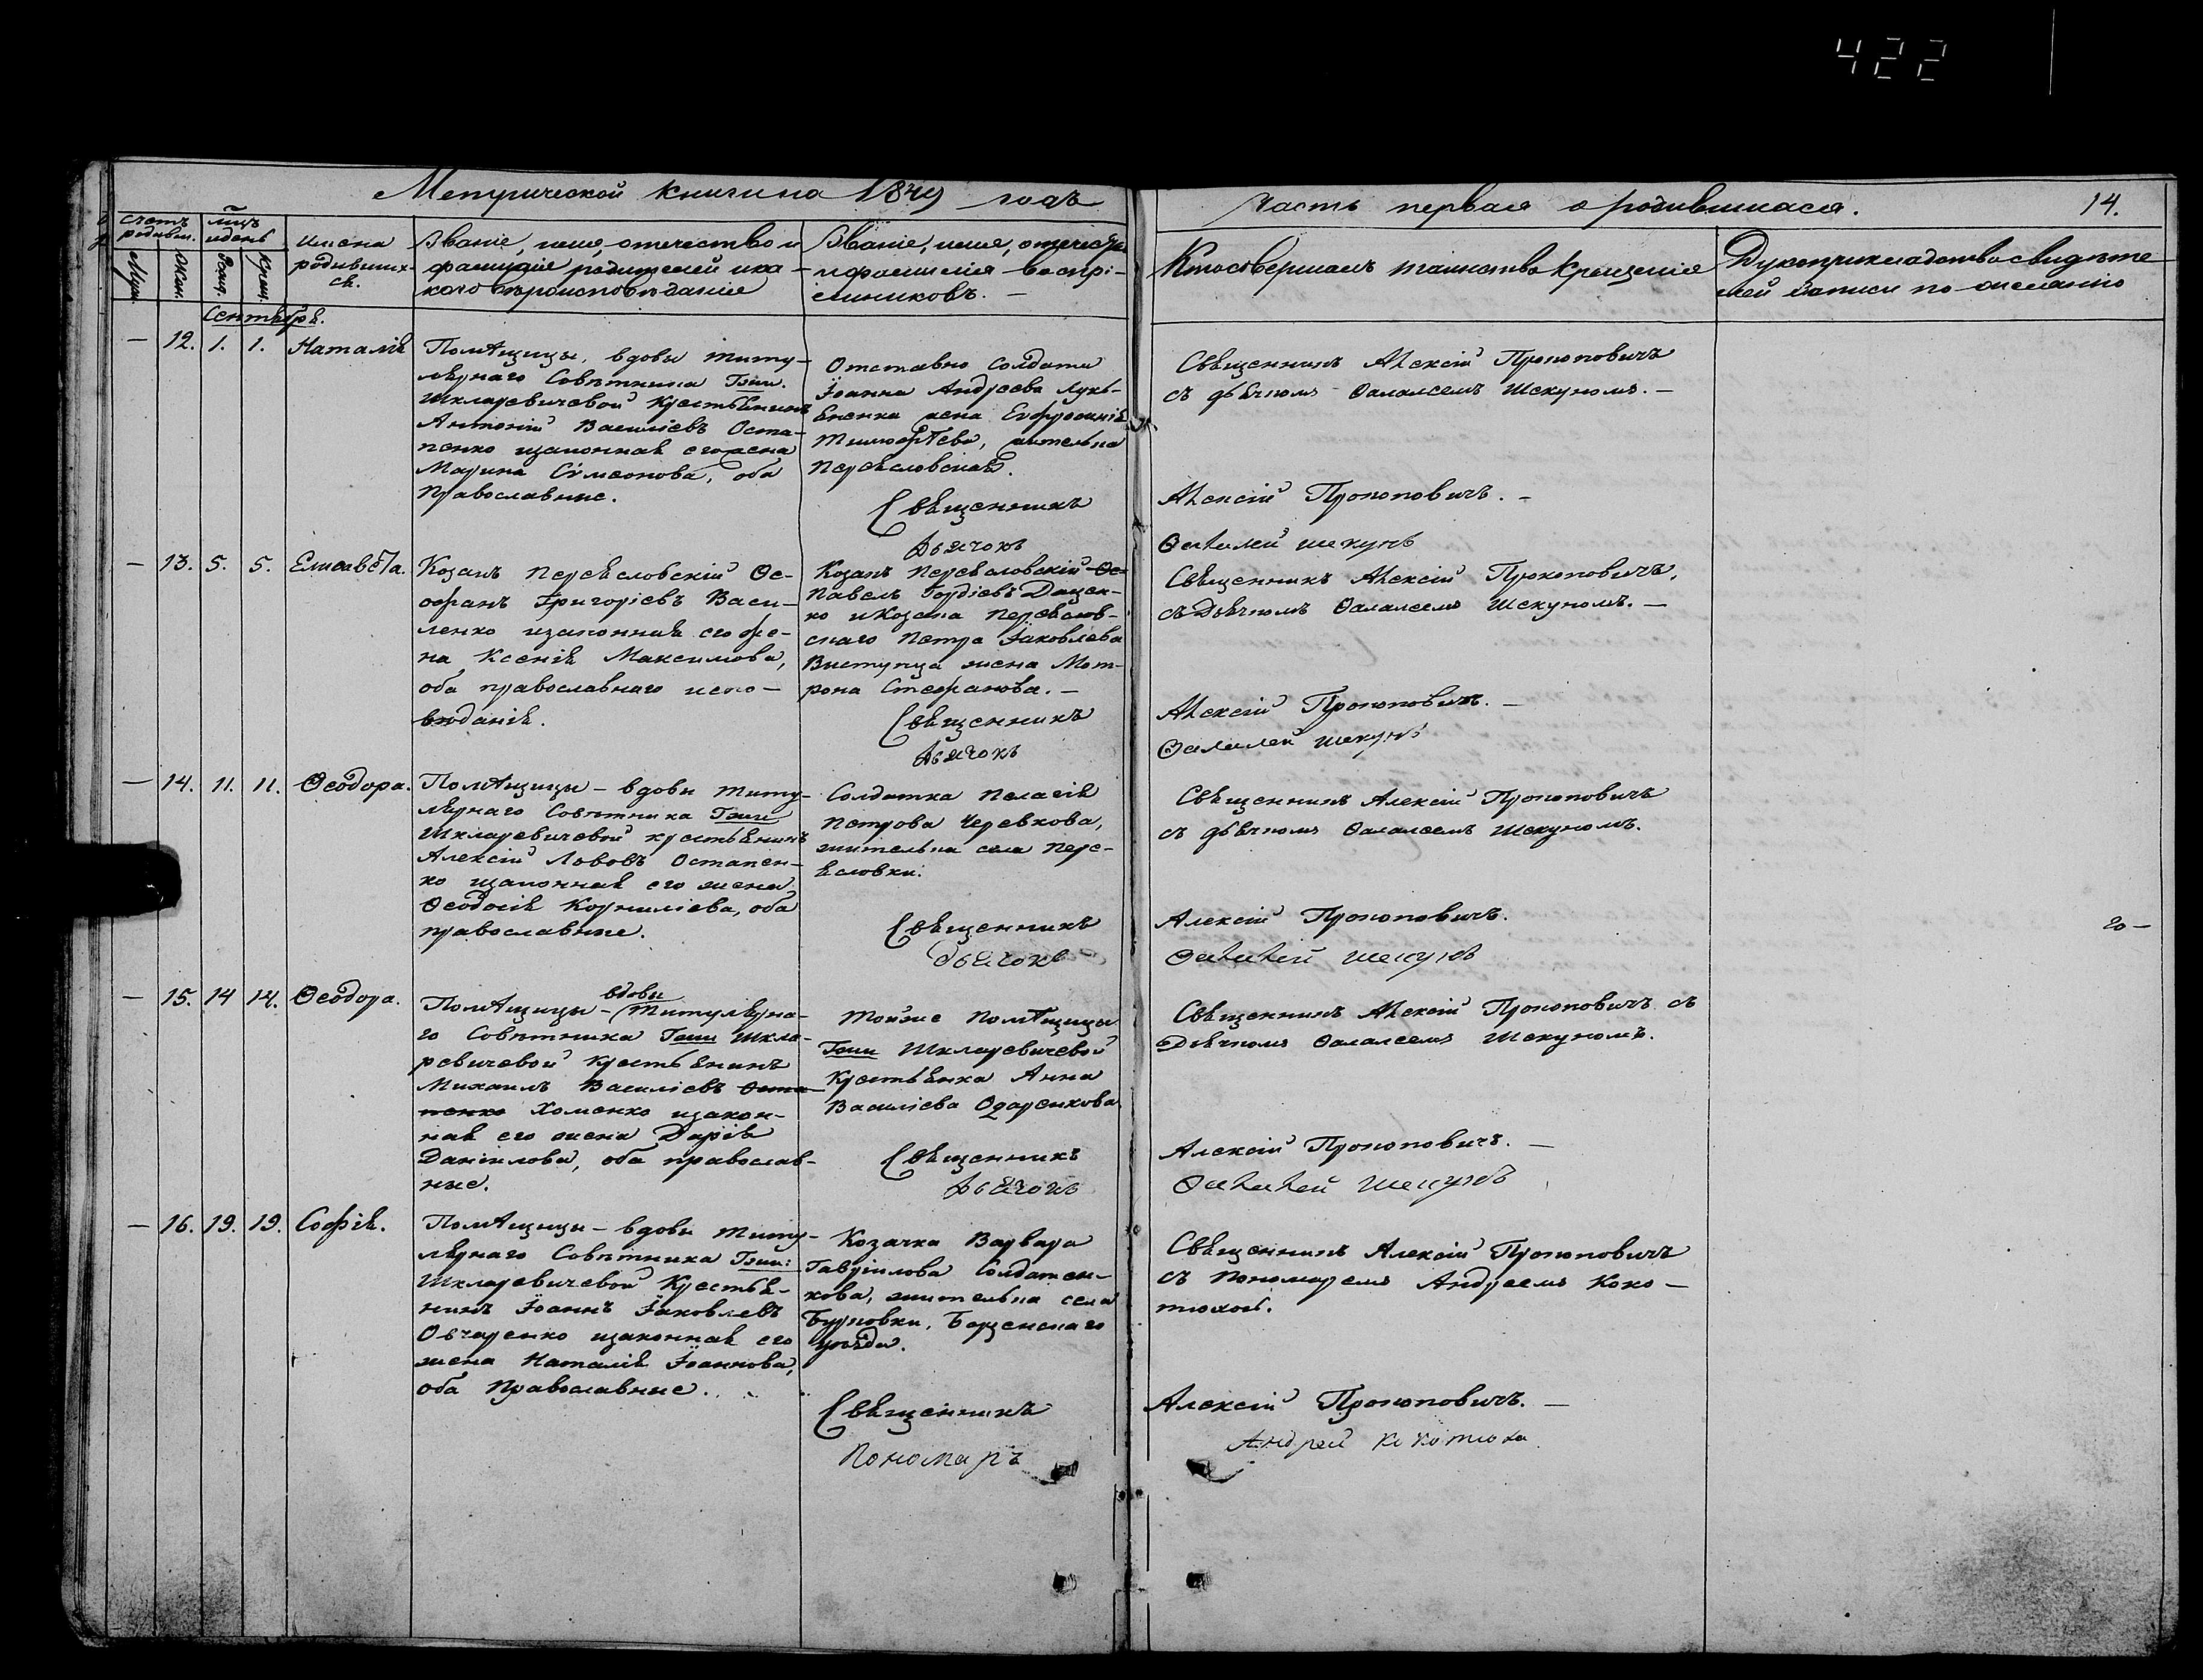 422
Метрической книги на 1849 годъ
Часть первая о родившихся.
14.
счетъ родивш.
Муж.
Жен.
мцъ и день
рожд.
крещ.
Имена
родивших-
ся.
Званіе, имя, отечество и
фамиліе родителей и ка-
кого вѣроисповѣданія
Званіе, имя, отечество
и фамилія воспрі-
емниковъ. —
Кто совершалъ таинство Крещенія
Рукоприкладство свидѣте
лей записи по желанію
Сентября.
— 12. 1. 1. Наталія
Помѣщицы, вдовы титу-
лярнаго Совѣтника
Шкляревичевой Крестьянинъ
Антоній Василіевъ Оста-
пенко и законная его жена
Марина Сѵмеонова, оба
Православные.
Отставно Солдата
Іоанна Андреева Лукь-
яненка жена Евфросинія
Тимофѣева, жителька
Переясловская.
Священникъ
Дьячокъ
Священникъ Алексій Прокоповичъ
съ дьячкомъ Ѳалалеемъ Шекуномъ. —
Алексій Прокоповичъ. —
Ѳалалей шекунъ
— 13. 5. 5. Елисавѣта.
Козакъ Переясловскій Ѳе-
офанъ Григоріевъ Васи-
ленко и законная его же-
на Ксенія Максимова,
оба православнаго испо-
вѣданія.
Козакъ Переясловскій
Павелъ Гордіевъ Дацен-
ко и Козака Переяслов-
скаго Петра Іаковлева
Виступца жена Мат-
рона Стефанова. —
Священникъ
Дьячокъ
Священникъ Алексій Прокоповичъ,
съ Дьячкомъ Ѳалалеемъ Шекуномъ. —
Алексій Прокоповичъ. —
Ѳалалей шекунъ
— 14. 11. 11. Ѳеодора.
Помѣщицы — вдовы титу-
лярнаго Совѣтника
Шкляревичевой крестьянинъ
Алексій Львовъ Остапен-
ко и законная его жена
Ѳеодосія Корниліева, оба
православные.
Солдатка Пелагія
Петрова Черевкова,
жителька села Пере-
ясловки.
Священникъ
Дьячокъ
Священникъ Алексій Прокоповичъ
съ дьячкомъ Ѳалалеемъ Шекуномъ.
Алексій Прокоповичъ.
Ѳалалей шекунъ
— 15. 14 14. Ѳеодора.
вдовы
Помѣщицы — Титулярна-
го Совѣтника Шкля-
ревичевой Крестьянинъ
Михаилъ Василіевъ Оста-
пенко Хоменко и закон-
ная его жена Дарія
Даніилова, оба православ-
ные.
Той же Помѣщицы
Шкляревичевой
Крестьянка Анна
Василіева Одаренкова
Священникъ
Дьячокъ
Священникъ Алексій Прокоповичъ съ
Дьячкомъ Ѳалалеемъ Шекуномъ.
Алексій Прокоповичъ. —
Ѳалалей шекунъ
— 16. 19. 19. Софія.
Помѣщицы — вдовы титу-
лярнаго Совѣтника
Шкляревичевой Крестья-
нинъ Іоаннъ Іаковлевъ
Овчаренко и законная его
жена Наталія Іоаннова,
оба Православные.
Козачка Варвара
Гавріилова Солдатен-
кова, жителька села
Буровки, Борзенскаго
уѣзда.
Священникъ
Пономаръ
Священникъ Алексій Прокоповичъ
съ Пономаремъ Андреемъ Коко-
тюхой.
Алексій Прокоповичъ. —
Андрей Кокотюха